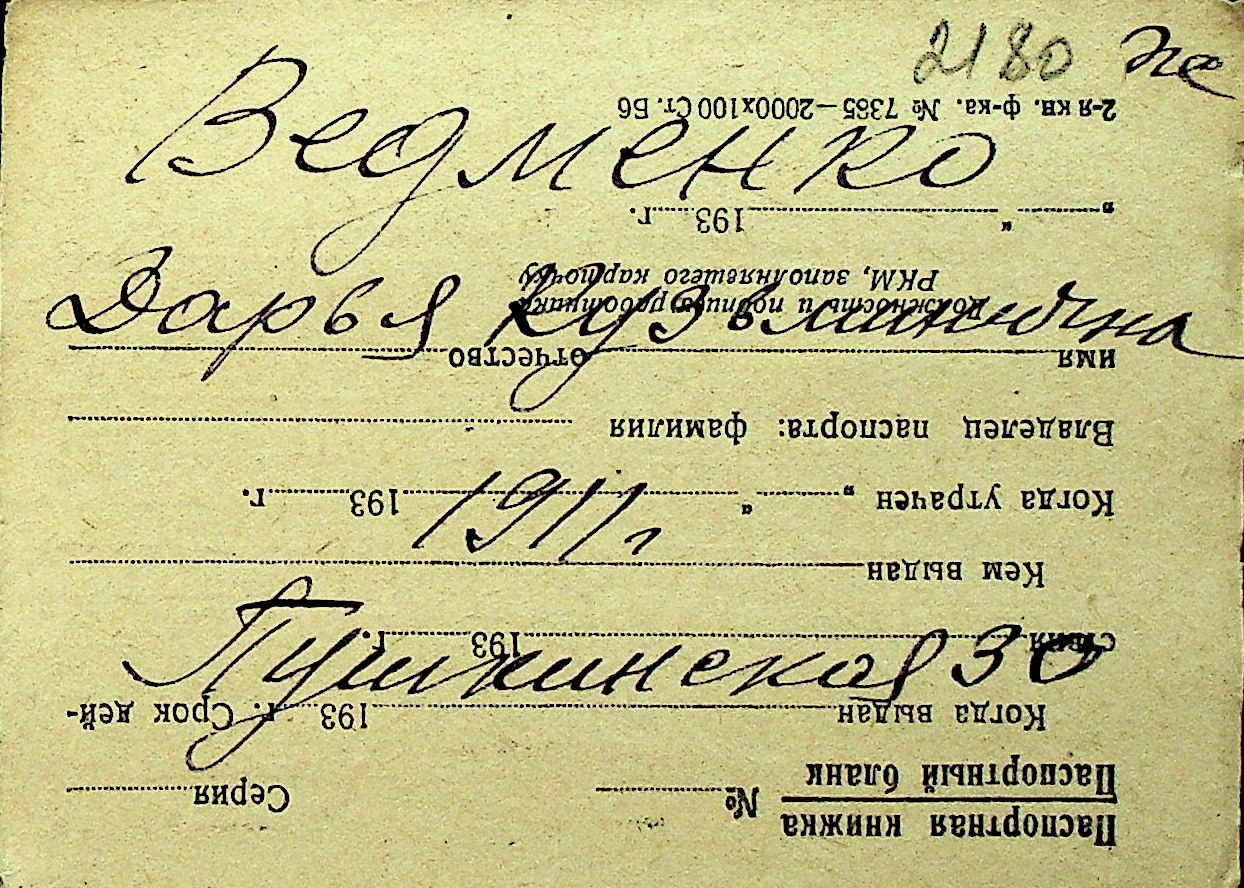 2180
Ведменко
Дарья Кузьминична
1911 г
Пушкинская 30
Паспортная книжка
Паспортный бланк
№ Серия
Когда выдан 193 г. Срок дей-
ствия 193 г.
Кем выдан
Когда утрачен „ “ 193 г.
Владелец паспорта: фамилия
имя отчество
Должность и подпись работника
РКМ, заполнявшего карточку
„ “ 193 г.
2-я кн. ф-ка. № 7365—2000х100 Ст. Б6